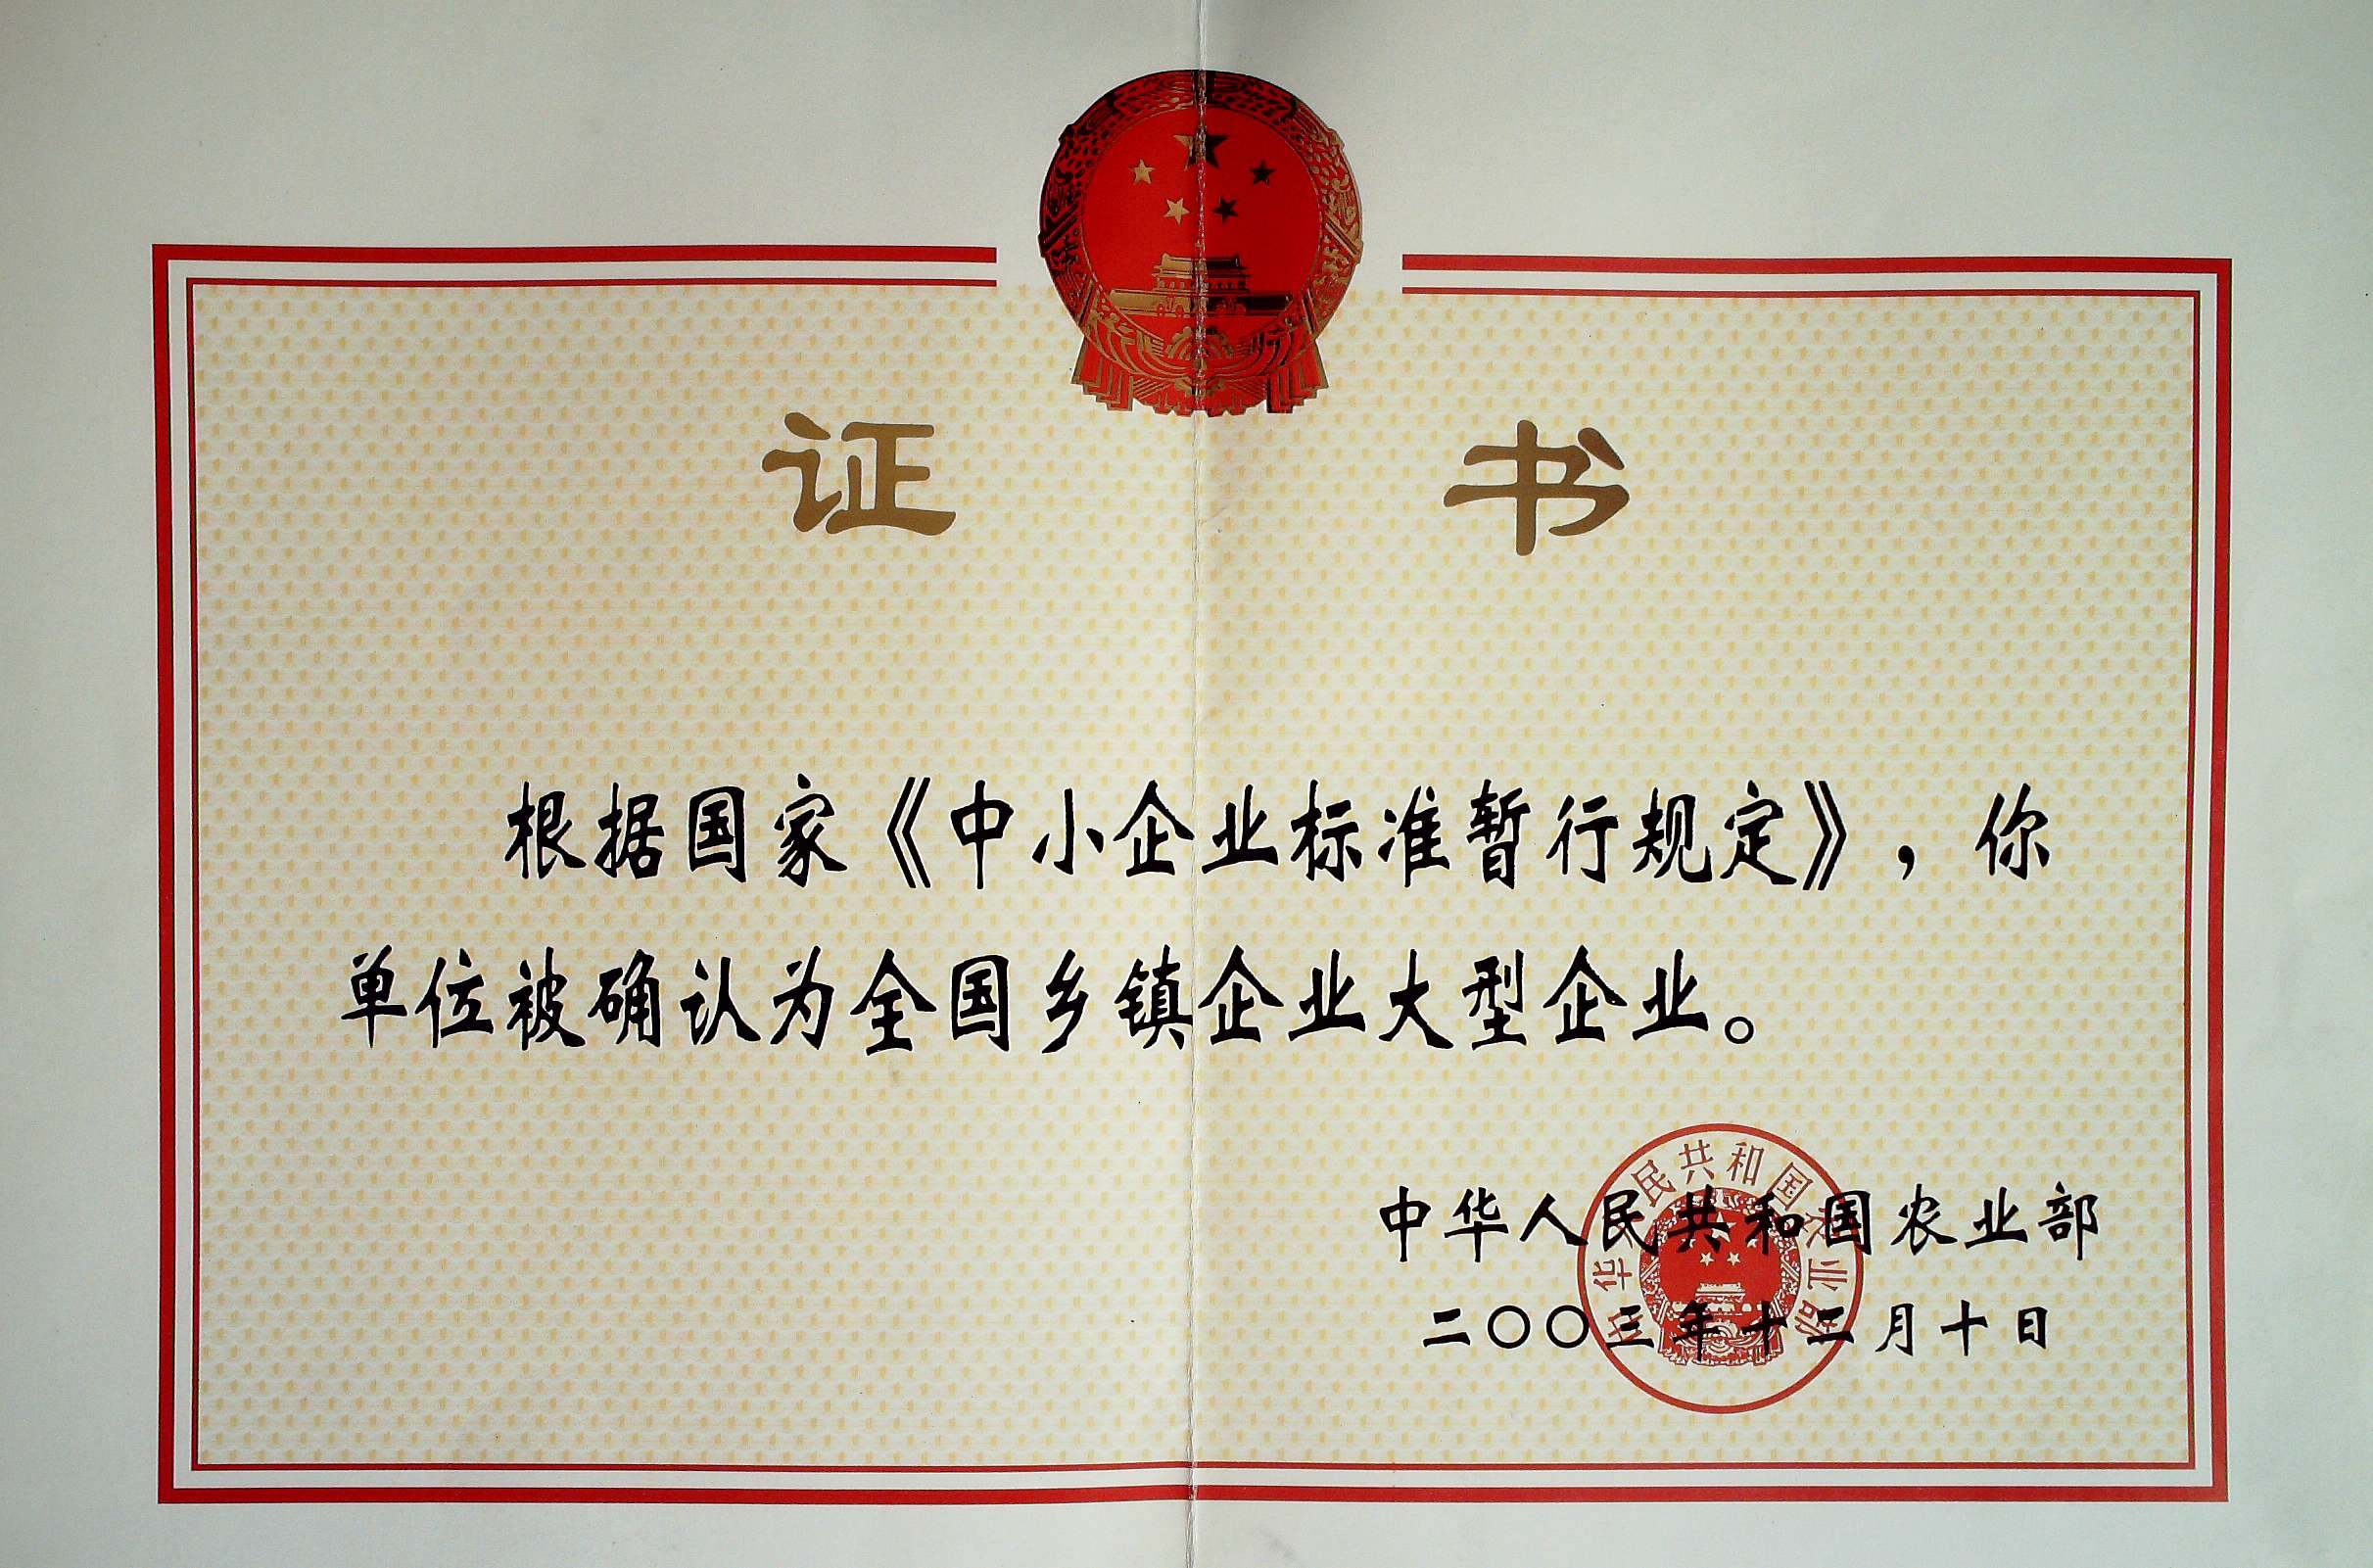 证书
根据国家《中小企业标准暂行规定》，你
单位被确认为全国乡镇企业大型企业。
中华人民共和国农业部
二〇〇三年十二月十日
中华人民共和国农业部